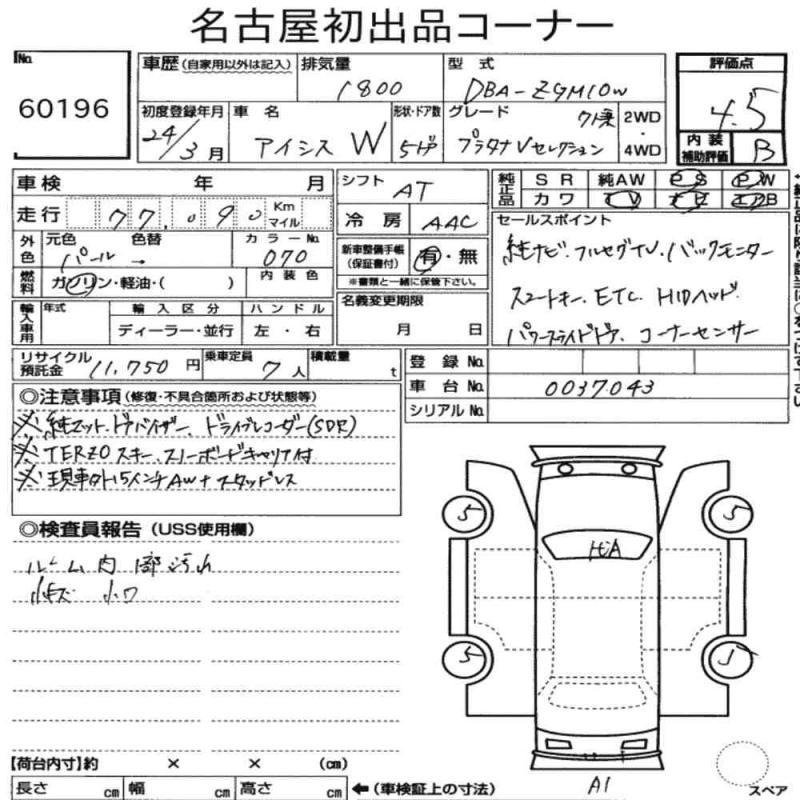 名古屋初出品コーナー
No. 60196
車歴 (自家用以外は記入)
排気量 1800
型式 DBA-ZGM10W
評価点 4.5
内装補助評価 B
初度登録年月 24/3月
車名 アイシス W
形状・ドア数 5ドア
グレード 7人乗 プラタナVセレクション
2WD・4WD
車検 年 月
走行 77,090 Km マイル
外色 元色 パール 色替 →
カラーNo. 070
燃料 ガソリン・軽油・( )
内装色
輸入車用 年式 輸入区分 ハンドル
ディーラー・並行 左・右
リサイクル預託金 11,750円
乗車定員 7人
積載量 t
シフト AT
冷房 AAC
新車整備手帳(保証書付) 有・無
※書類と一緒に保管下さい。
名義変更期限
月 日
純正品 SR 純AW PS PW
カワ TV ナビ エアB
セールスポイント
純ナビ.フルセグTV.バックモニター
スマートキー.ETC.HIDヘッド.
パワースライドドア.コーナーセンサー
登録No.
車台No. 0037043
シリアルNo.
◎注意事項(修復・不具合箇所および状態等)
※純マット.ドアバイザー.ドライブレコーダー(SDR)
※TERZOスキー.スノーボードキャリア付
※現車外15インチAW+スタッドレス
◎検査員報告(USS使用欄)
ルーム内部汚れ
小キズ 小凹
5
5
5
A1
【荷台内寸】約 × × (cm)
長さ cm 幅 cm 高さ cm
←(車検証上の寸法)
スペア